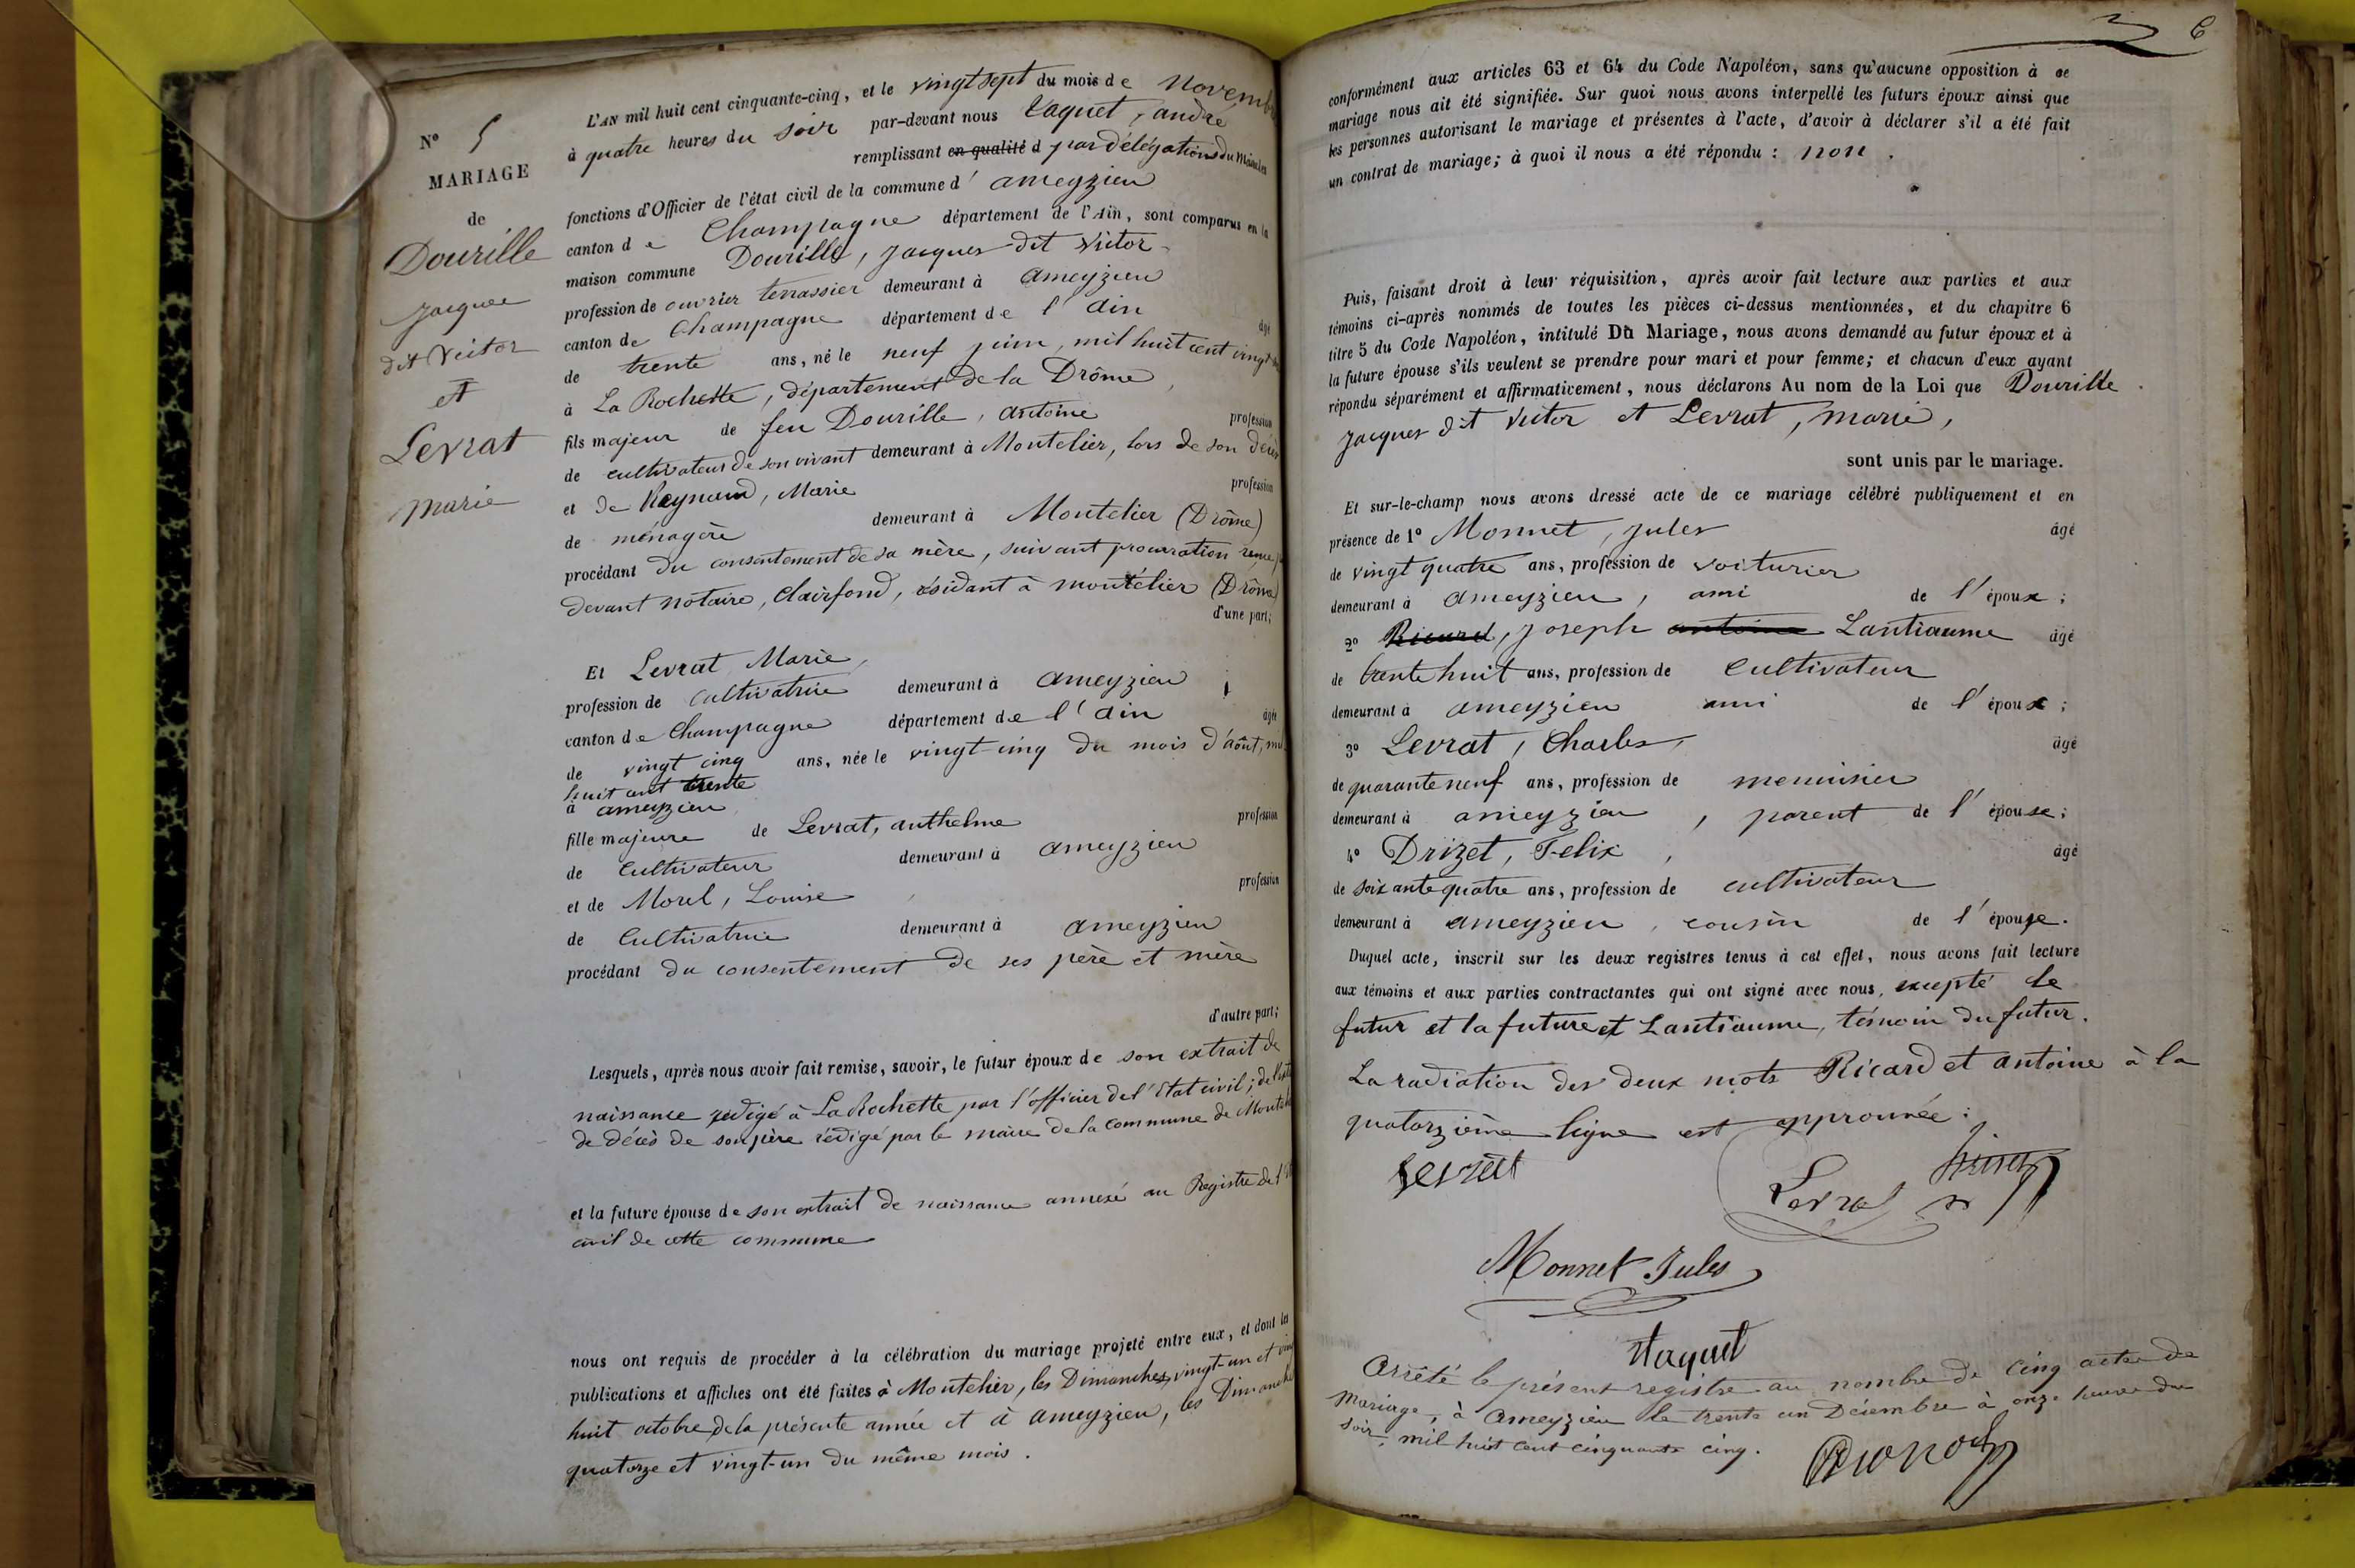 N° 5
MARIAGE
de
Dourille
Jacques
dit Victor
et
Levrat
Marie
L'AN mil huit cent cinquante-cinq, et le vingt sept du mois de Novembre
à quatre heures du soir par-devant nous Taquet, andré
remplissant en qualité d par délégation du Maire les
fonctions d'Officier de l'état civil de la commune d' ameyzieu
canton de Champagne département de l'Ain, sont comparus en la
maison commune Dourille, Jacques dit Victor
profession de ouvrier terrassier demeurant à Ameyzieu
canton de Champagne département de l'Ain âgé
de trente ans, né le neuf juin, mil huit cent vingt
à La Rochette, département de la Drôme,
fils majeur de feu Dourille, Antoine profession
de cultivateur de son vivant demeurant à Montelier, lors de son décès
et de Raynaud, Marie profession
de ménagère demeurant à Montelier (Drôme)
procédant du consentement de sa mère, suivant procuration
devant notaire, Clairfond, résidant à montélier (Drôme)
d'une part;
Et Levrat Marie,
profession de cultivatrice demeurant à Ameyzieu
canton de Champagne département de l'Ain âgée
de vingt cinq ans, née le vingt-cinq du mois d'août, mil
huit cent trente
à ameyzieu
fille majeure de Levrat, anthelme profession
de Cultivateur demeurant à Ameyzieu
et de Morel, Louise profession
de Cultivatrice demeurant à Ameyzieu
procédant du consentement de ses père et mère
d'autre part;
Lesquels, après nous avoir fait remise, savoir, le futur époux de son extrait de
naissance rédigé à La Rochette par l'officier de l'Etat civil; de l'extrait
de décès de son père rédigé par le maire de la commune de Montelier
et la future épouse de son extrait de naissance annexé au Registre de l'Etat
civil de cette commune
nous ont requis de procéder à la célébration du mariage projeté entre eux, et dont les
publications et affiches ont été faites à Montelier, les Dimanches, vingt-un et vingt
huit octobre de la présente année et à Ameyzieu, les Dimanches
quatorze et vingt-un du même mois.
6
conformément aux articles 63 et 64 du Code Napoléon, sans qu'aucune opposition à ce
mariage nous ait été signifiée. Sur quoi nous avons interpellé les futurs époux ainsi que
les personnes autorisant le mariage et présentes à l'acte, d'avoir à déclarer s'il a été fait
un contrat de mariage; à quoi il nous a été répondu : non.
Puis, faisant droit à leur réquisition, après avoir fait lecture aux parties et aux
témoins ci-après nommés de toutes les pièces ci-dessus mentionnées, et du chapitre 6
titre 5 du Code Napoléon, intitulé Du Mariage, nous avons demandé au futur époux et à
la future épouse s'ils veulent se prendre pour mari et pour femme; et chacun d'eux ayant
répondu séparément et affirmativement, nous déclarons Au nom de la Loi que Dourille
Jacques dit Victor et Levrat, marie,
sont unis par le mariage.
Et sur-le-champ nous avons dressé acte de ce mariage célébré publiquement et en
présence de 1° Monnet, Jules âgé
de vingt quatre ans, profession de voiturier
demeurant à Ameyzieu, ami de l'époux;
2° Ricard, Joseph antoine Lantiaume âgé
de trente huit ans, profession de Cultivateur
demeurant à Ameyzieu ami de l'époux;
3° Levrat, Charles, âgé
de quarante neuf ans, profession de menuisier
demeurant à ameyzieu, parent de l'épouse;
4° Drizet, Felix, âgé
de soixante quatre ans, profession de cultivateur
demeurant à Ameyzieu, cousin de l'épouse.
Duquel acte, inscrit sur les deux registres tenus à cet effet, nous avons fait lecture
aux témoins et aux parties contractantes qui ont signé avec nous, excepté le
futur et la future et Lantiaume, témoin du futur.
La radiation des deux mots Ricard et Antoine à la
quatorzième ligne est approuvée.
Levrat
Levrat
Monnet Jules
Taquet
Arrêté le présent registre au nombre de cinq actes de
Mariage, à Ameyzieu le trente un Décembre à onze heures du
soir, mil huit cent cinquante cinq.